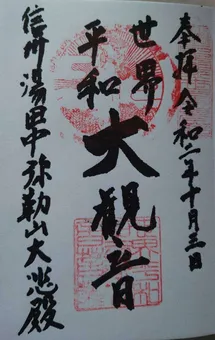 奉拝 令和二年十月三日
世界
平和
大観音
信州湯田中弥勒山大悲殿